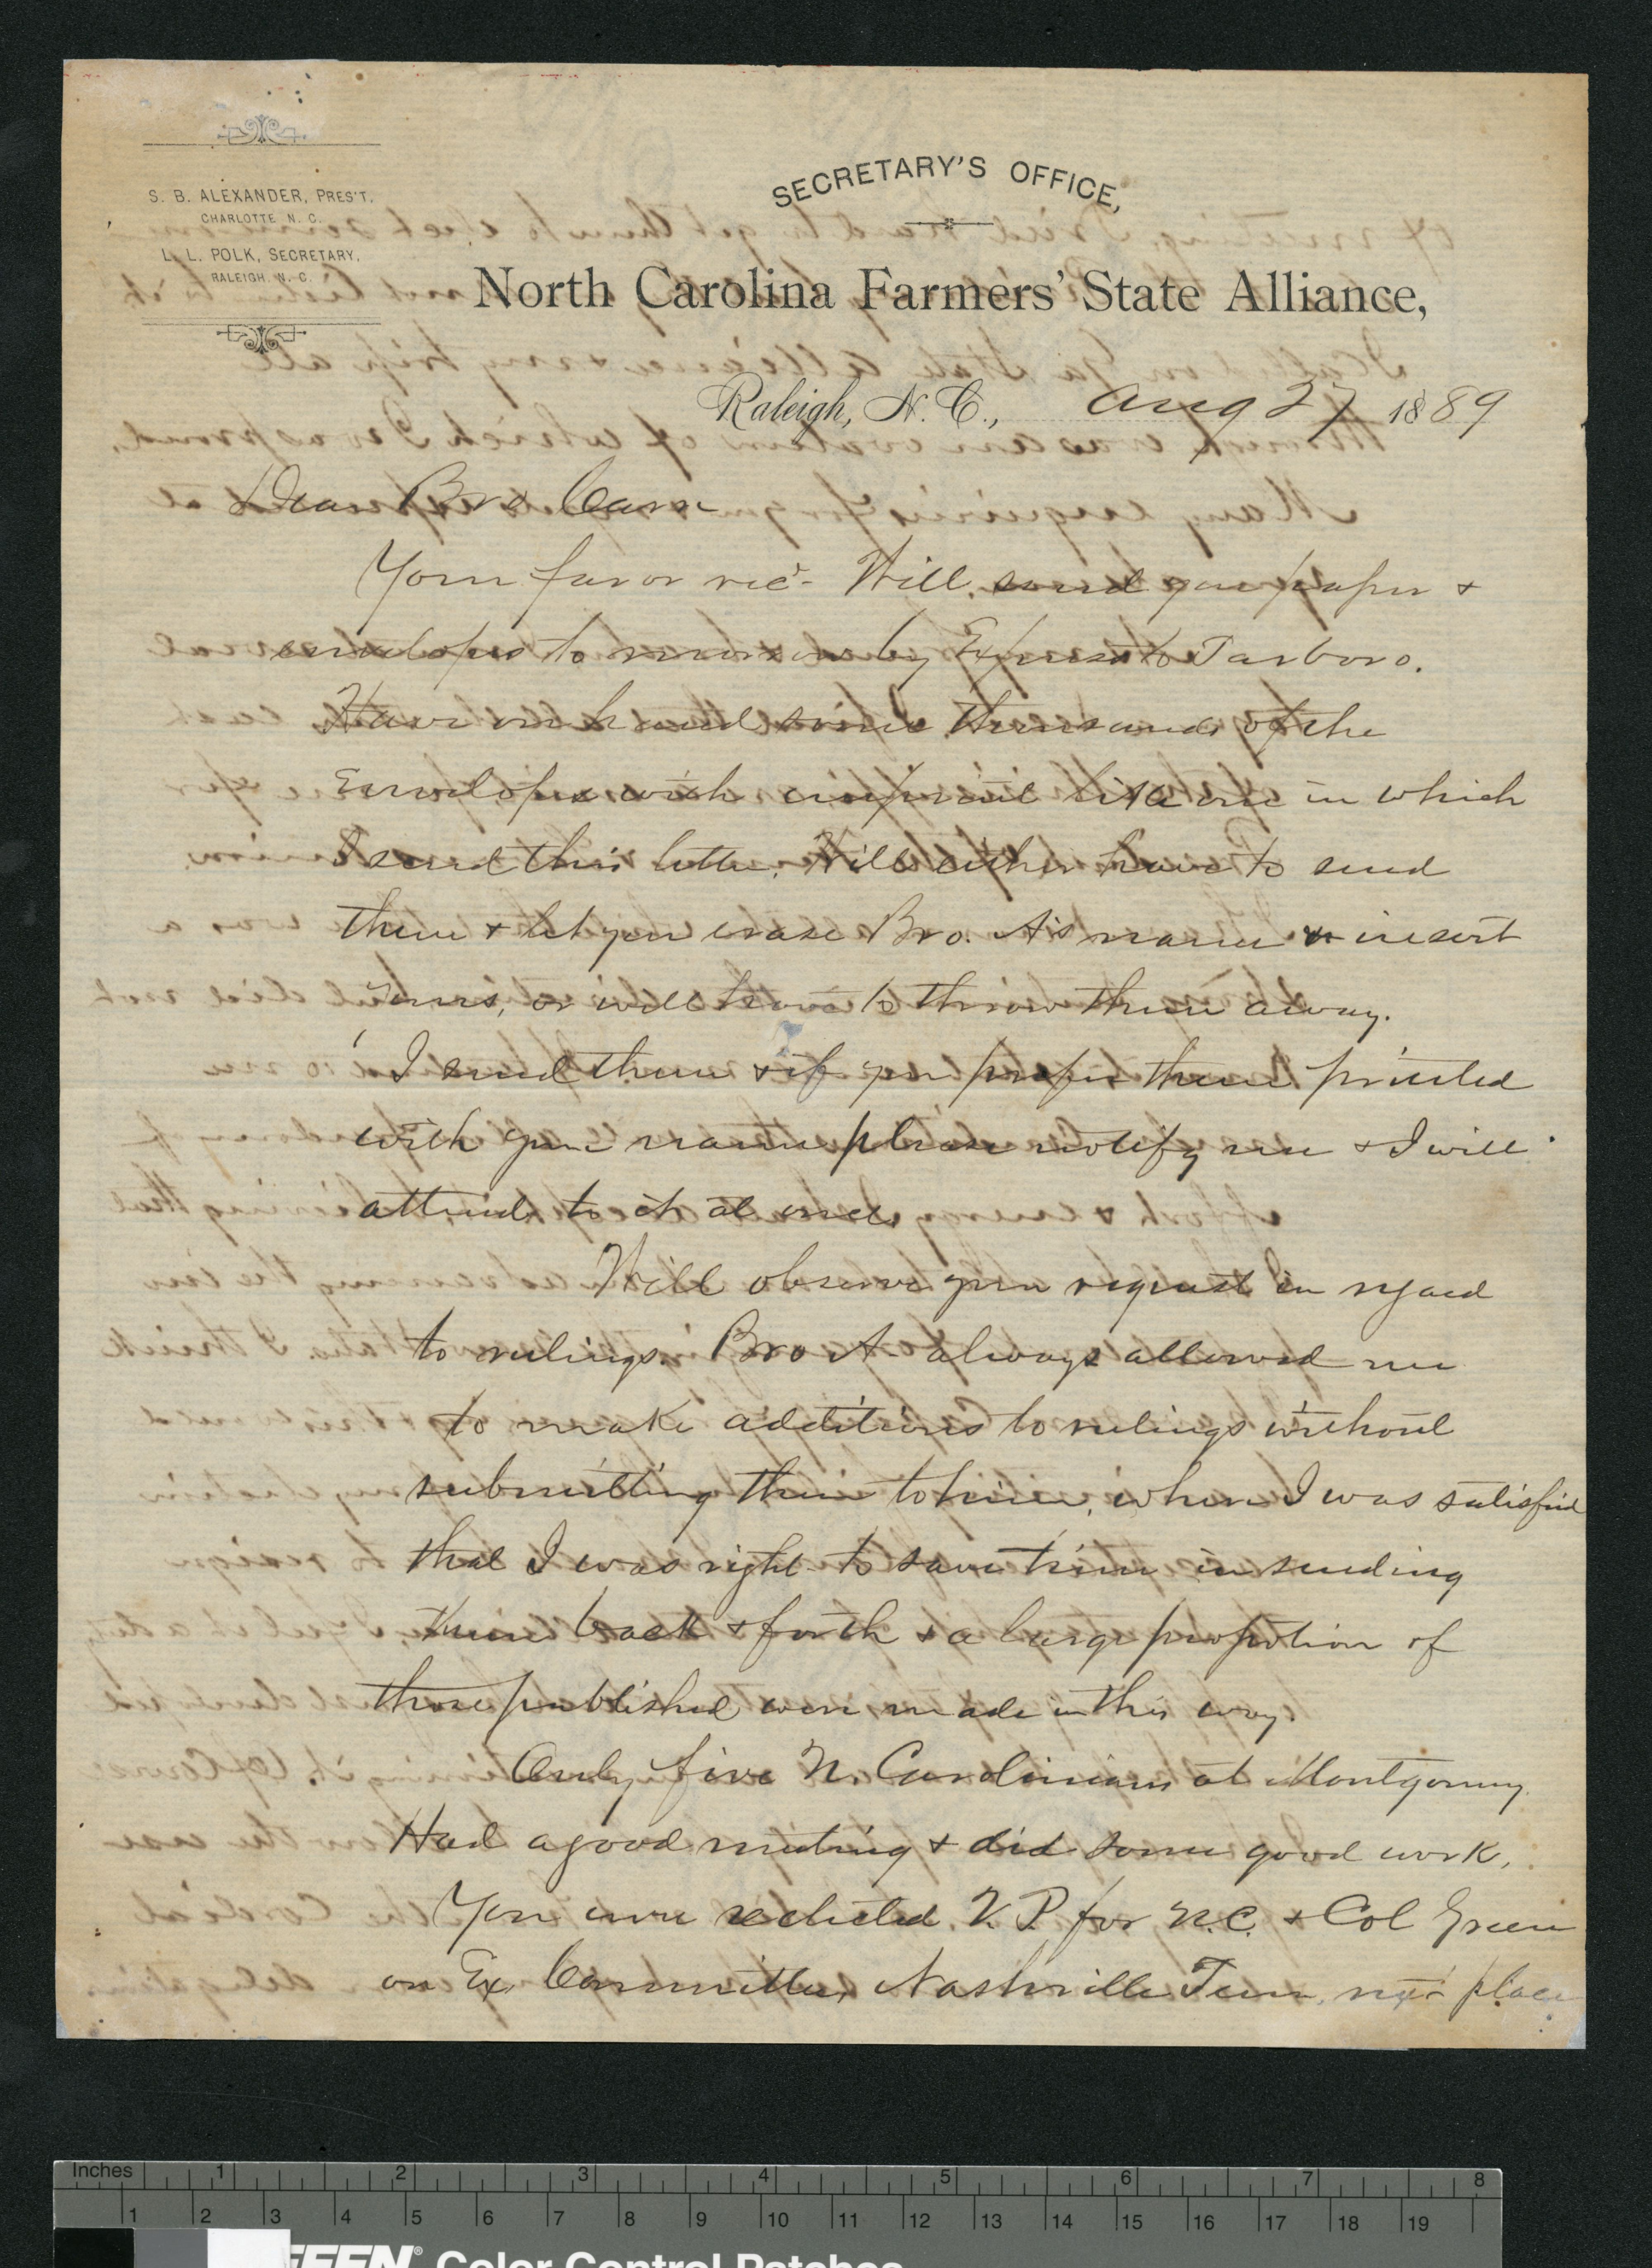 S. B. ALEXANDER, PRES'T.
CHARLOTTE N. C.
L. L. POLK, SECRETARY,
RALEIGH, N. C.
SECRETARY'S OFFICE,
North Carolina Farmers' State Alliance,
Raleigh, N. C., Aug 27 1889
Dear Bro Carr
Your favor rec'd- Will send you paper &
envelopes to morrow by Express to Tarboro.
Have on hand some thousands of the
Envelopes with imprint like one in which
I send this letter. Will either have to send
them & let you erase Bro. A's name & insert
yours, or will have to throw them away.
I send them & if you prefer them printed
with your name please notify me & I will
attend to it at once.
Will observe your request in regard
to rulings. Bro A- always allowed me
to make additions to rulings without
submitting them to him, when I was satisfied
that I was right- to save time in sending
them back & forth & a large proportion of
those published were made in this way.
Only five N. Carolinians at Montgomery.
Had a good meeting & did some good work.
You were reelected V. P. for N.C. & Col Green
on Ex. Committee, Nashville Tenn, next place
Inches 1 2 3 4 5 6 7 8
1 2 3 4 5 6 7 8 9 10 11 12 13 14 15 16 17 18 19
Color Control Patches